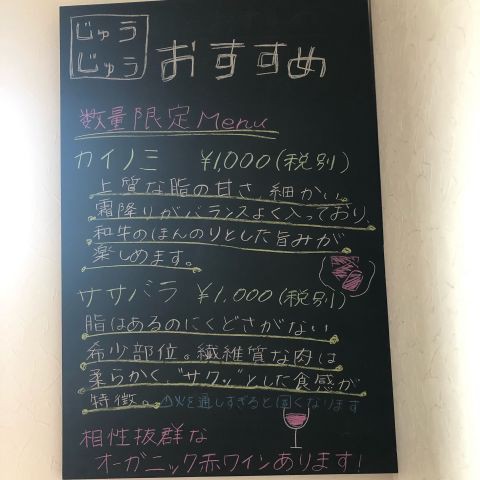 じゅう
じゅう
おすすめ
数量限定Menu
カイノミ ¥1,000(税別)
上質な脂の甘さ、細かい
霜降りがバランスよく入っており、
和牛のほんのりとした旨みが
楽しめます。
ササバラ ¥1,000(税別)
脂はあるのにくどさがない
希少部位。繊維質な肉は
柔らかく、"サクッ"とした食感が
特徴。△火を通しすぎると固くなります
相性抜群な
オーガニック赤ワインあります!